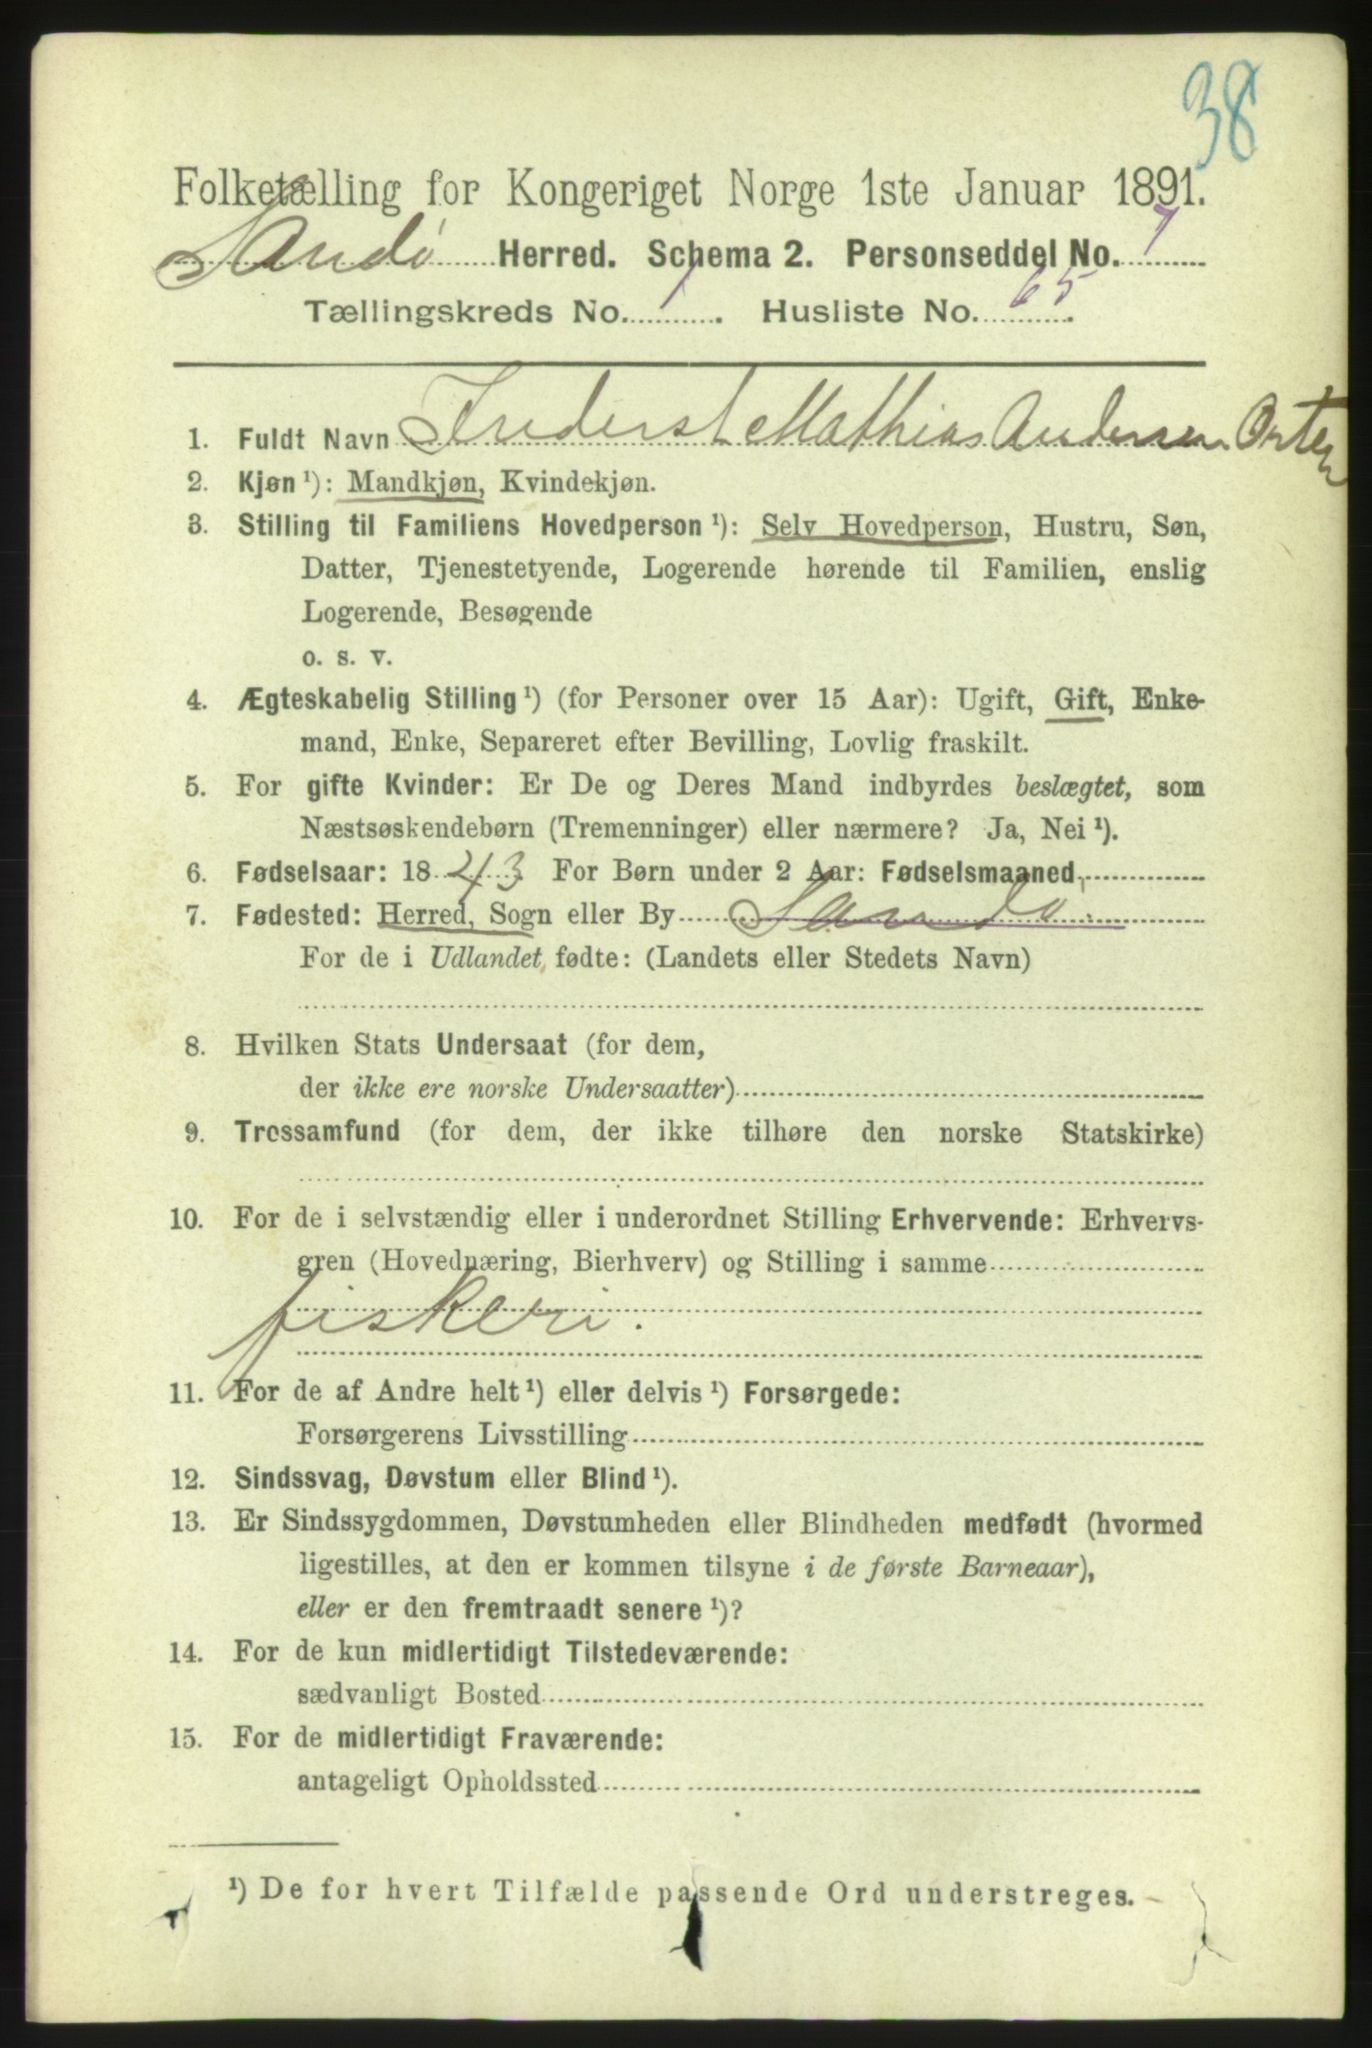 38
Folketælling for Kongeriget Norge 1ste Januar 1891.
Sandø Herred. Schema 2. Personseddel No. 1
Tællingskreds No. 1. Husliste No. 65.
1. Fuldt Navn Mathias Andersen Orten
2. Kjøn ¹): Mandkjøn, Kvindekjøn.
3. Stilling til Familiens Hovedperson ¹): Selv Hovedperson, Hustru, Søn,
Datter, Tjenestetyende, Logerende hørende til Familien, enslig
Logerende, Besøgende
o. s. v.
4. Ægteskabelig Stilling ¹) (for Personer over 15 Aar): Ugift, Gift, Enke-
mand, Enke, Separeret efter Bevilling, Lovlig fraskilt.
5. For gifte Kvinder: Er De og Deres Mand indbyrdes beslægtet, som
Næstsøskendebørn (Tremenninger) eller nærmere? Ja, Nei ¹).
6. Fødselsaar: 1843 For Børn under 2 Aar: Fødselsmaaned
7. Fødested: Herred, Sogn eller By Sandø.
For de i Udlandet fødte: (Landets eller Stedets Navn)
8. Hvilken Stats Undersaat (for dem,
der ikke ere norske Undersaatter)
9. Trossamfund (for dem, der ikke tilhøre den norske Statskirke)
10. For de i selvstændig eller i underordnet Stilling Erhvervende: Erhvervs-
gren (Hovednæring, Bierhverv) og Stilling i samme
fiskeri.
11. For de af Andre helt ¹) eller delvis ¹) Forsørgede:
Forsørgerens Livsstilling
12. Sindssvag, Døvstum eller Blind ¹).
13. Er Sindssygdommen, Døvstumheden eller Blindheden medfødt (hvormed
ligestilles, at den er kommen tilsyne i de første Barneaar),
eller er den fremtraadt senere ¹)?
14. For de kun midlertidigt Tilstedeværende:
sædvanligt Bosted
15. For de midlertidigt Fraværende:
antageligt Opholdssted
¹) De for hvert Tilfælde passende Ord understreges.